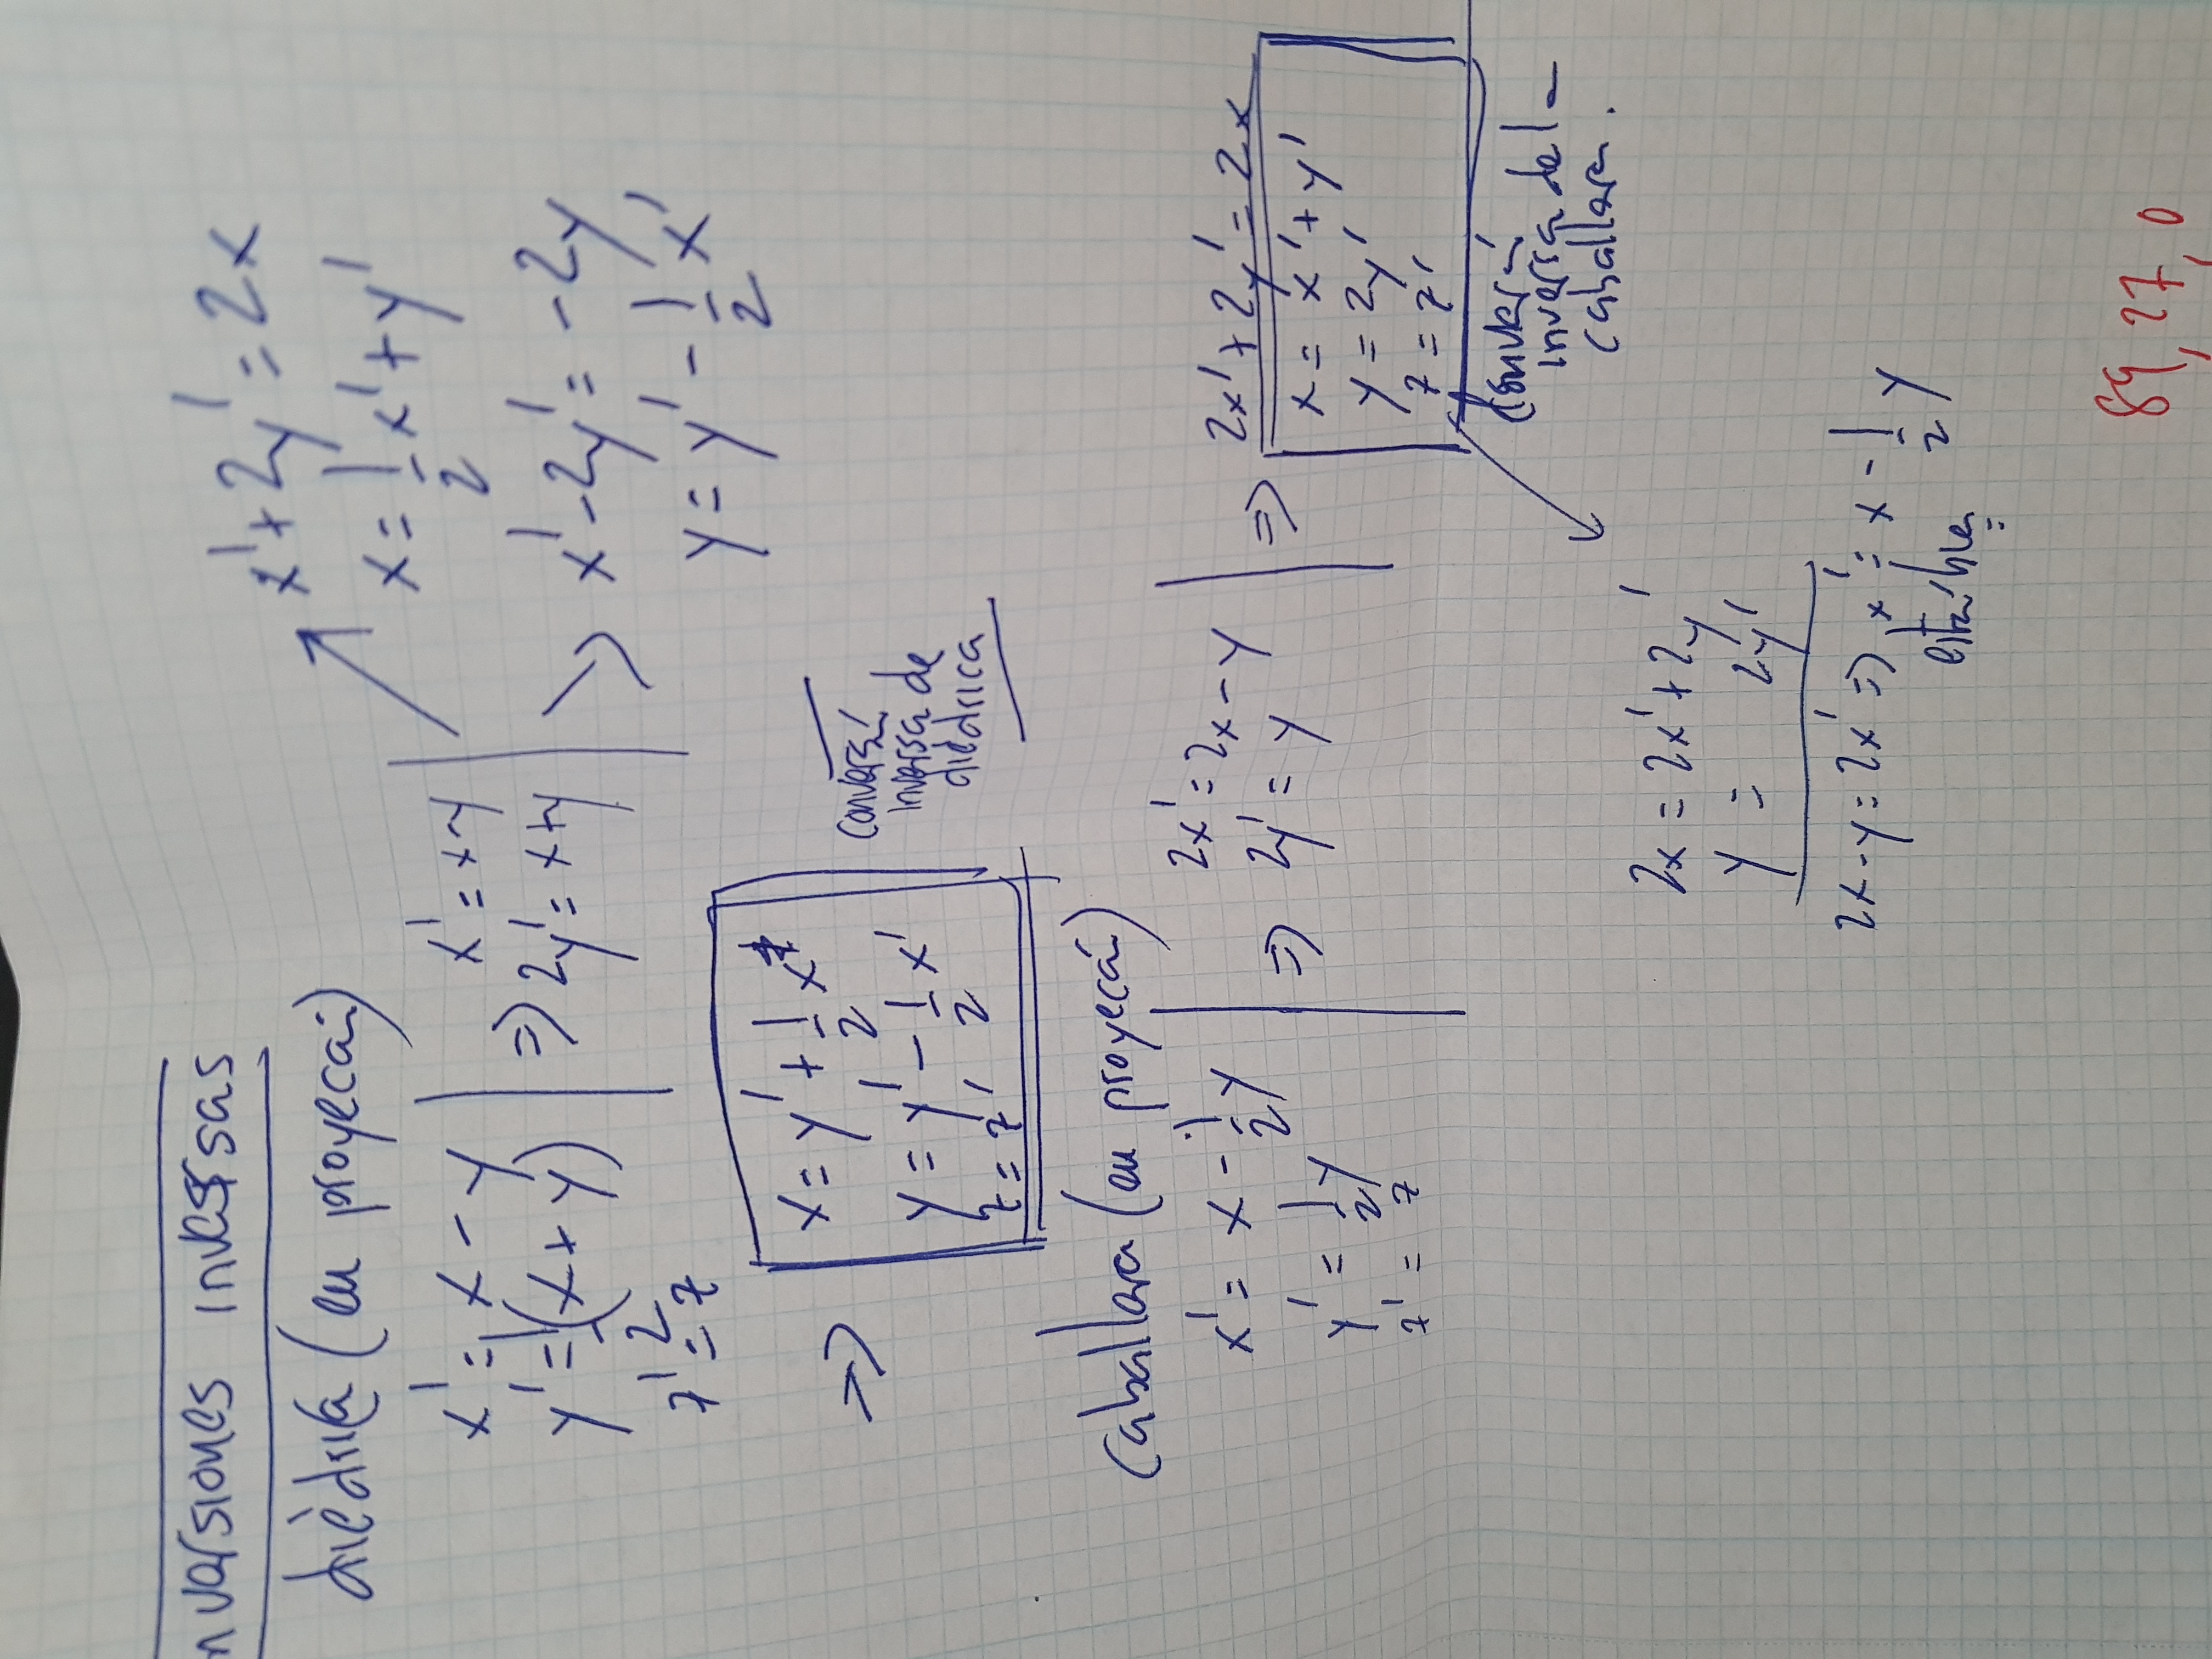 nversiones inversas
diédrica (en proyección)
x' = x - y
y' = 1/2 (x + y)
z' = z
=> x' = x-y
2y' = x+y
x' + 2y' = 2x
x = 1/2 x' + y'
x' - 2y' = -2y
y = y' - 1/2 x'
=> x = y' + 1/2 x'
y = y' - 1/2 x'
z = z'
conversión
inversa de
diédrica
caballera (en proyección)
x' = x - 1/2 y
y' = 1/2 y
z' = z
=> 2x' = 2x - y
2y' = y
=> 2x' + 2y' = 2x
x = x' + y'
y = 2y'
z = z'
conversión
inversa de la
caballera.
2x = 2x' + 2y'
y = 2y'
2x - y = 2x' => x' = x - 1/2 y
está bien
89, 27, 0